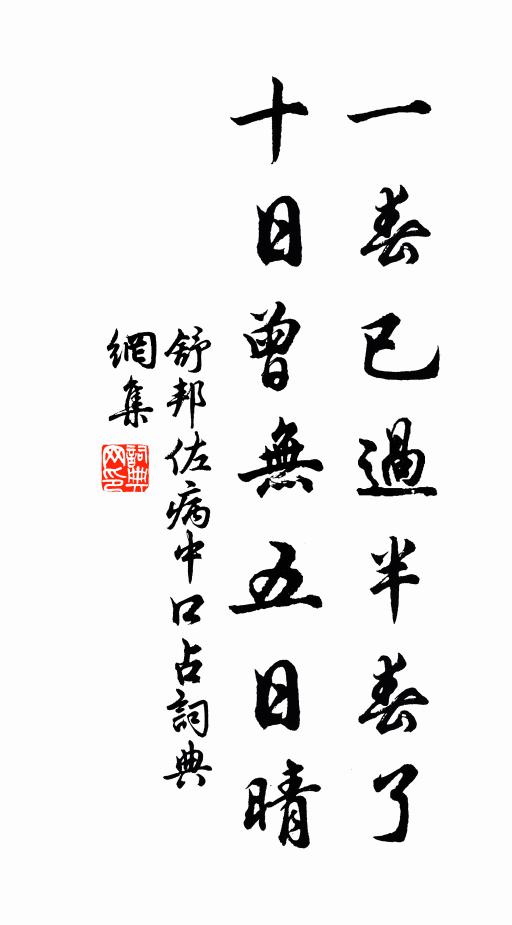 一春已過半春了
十日曾無五日晴
舒邦佐病中口占詞典
網集
詞典網印